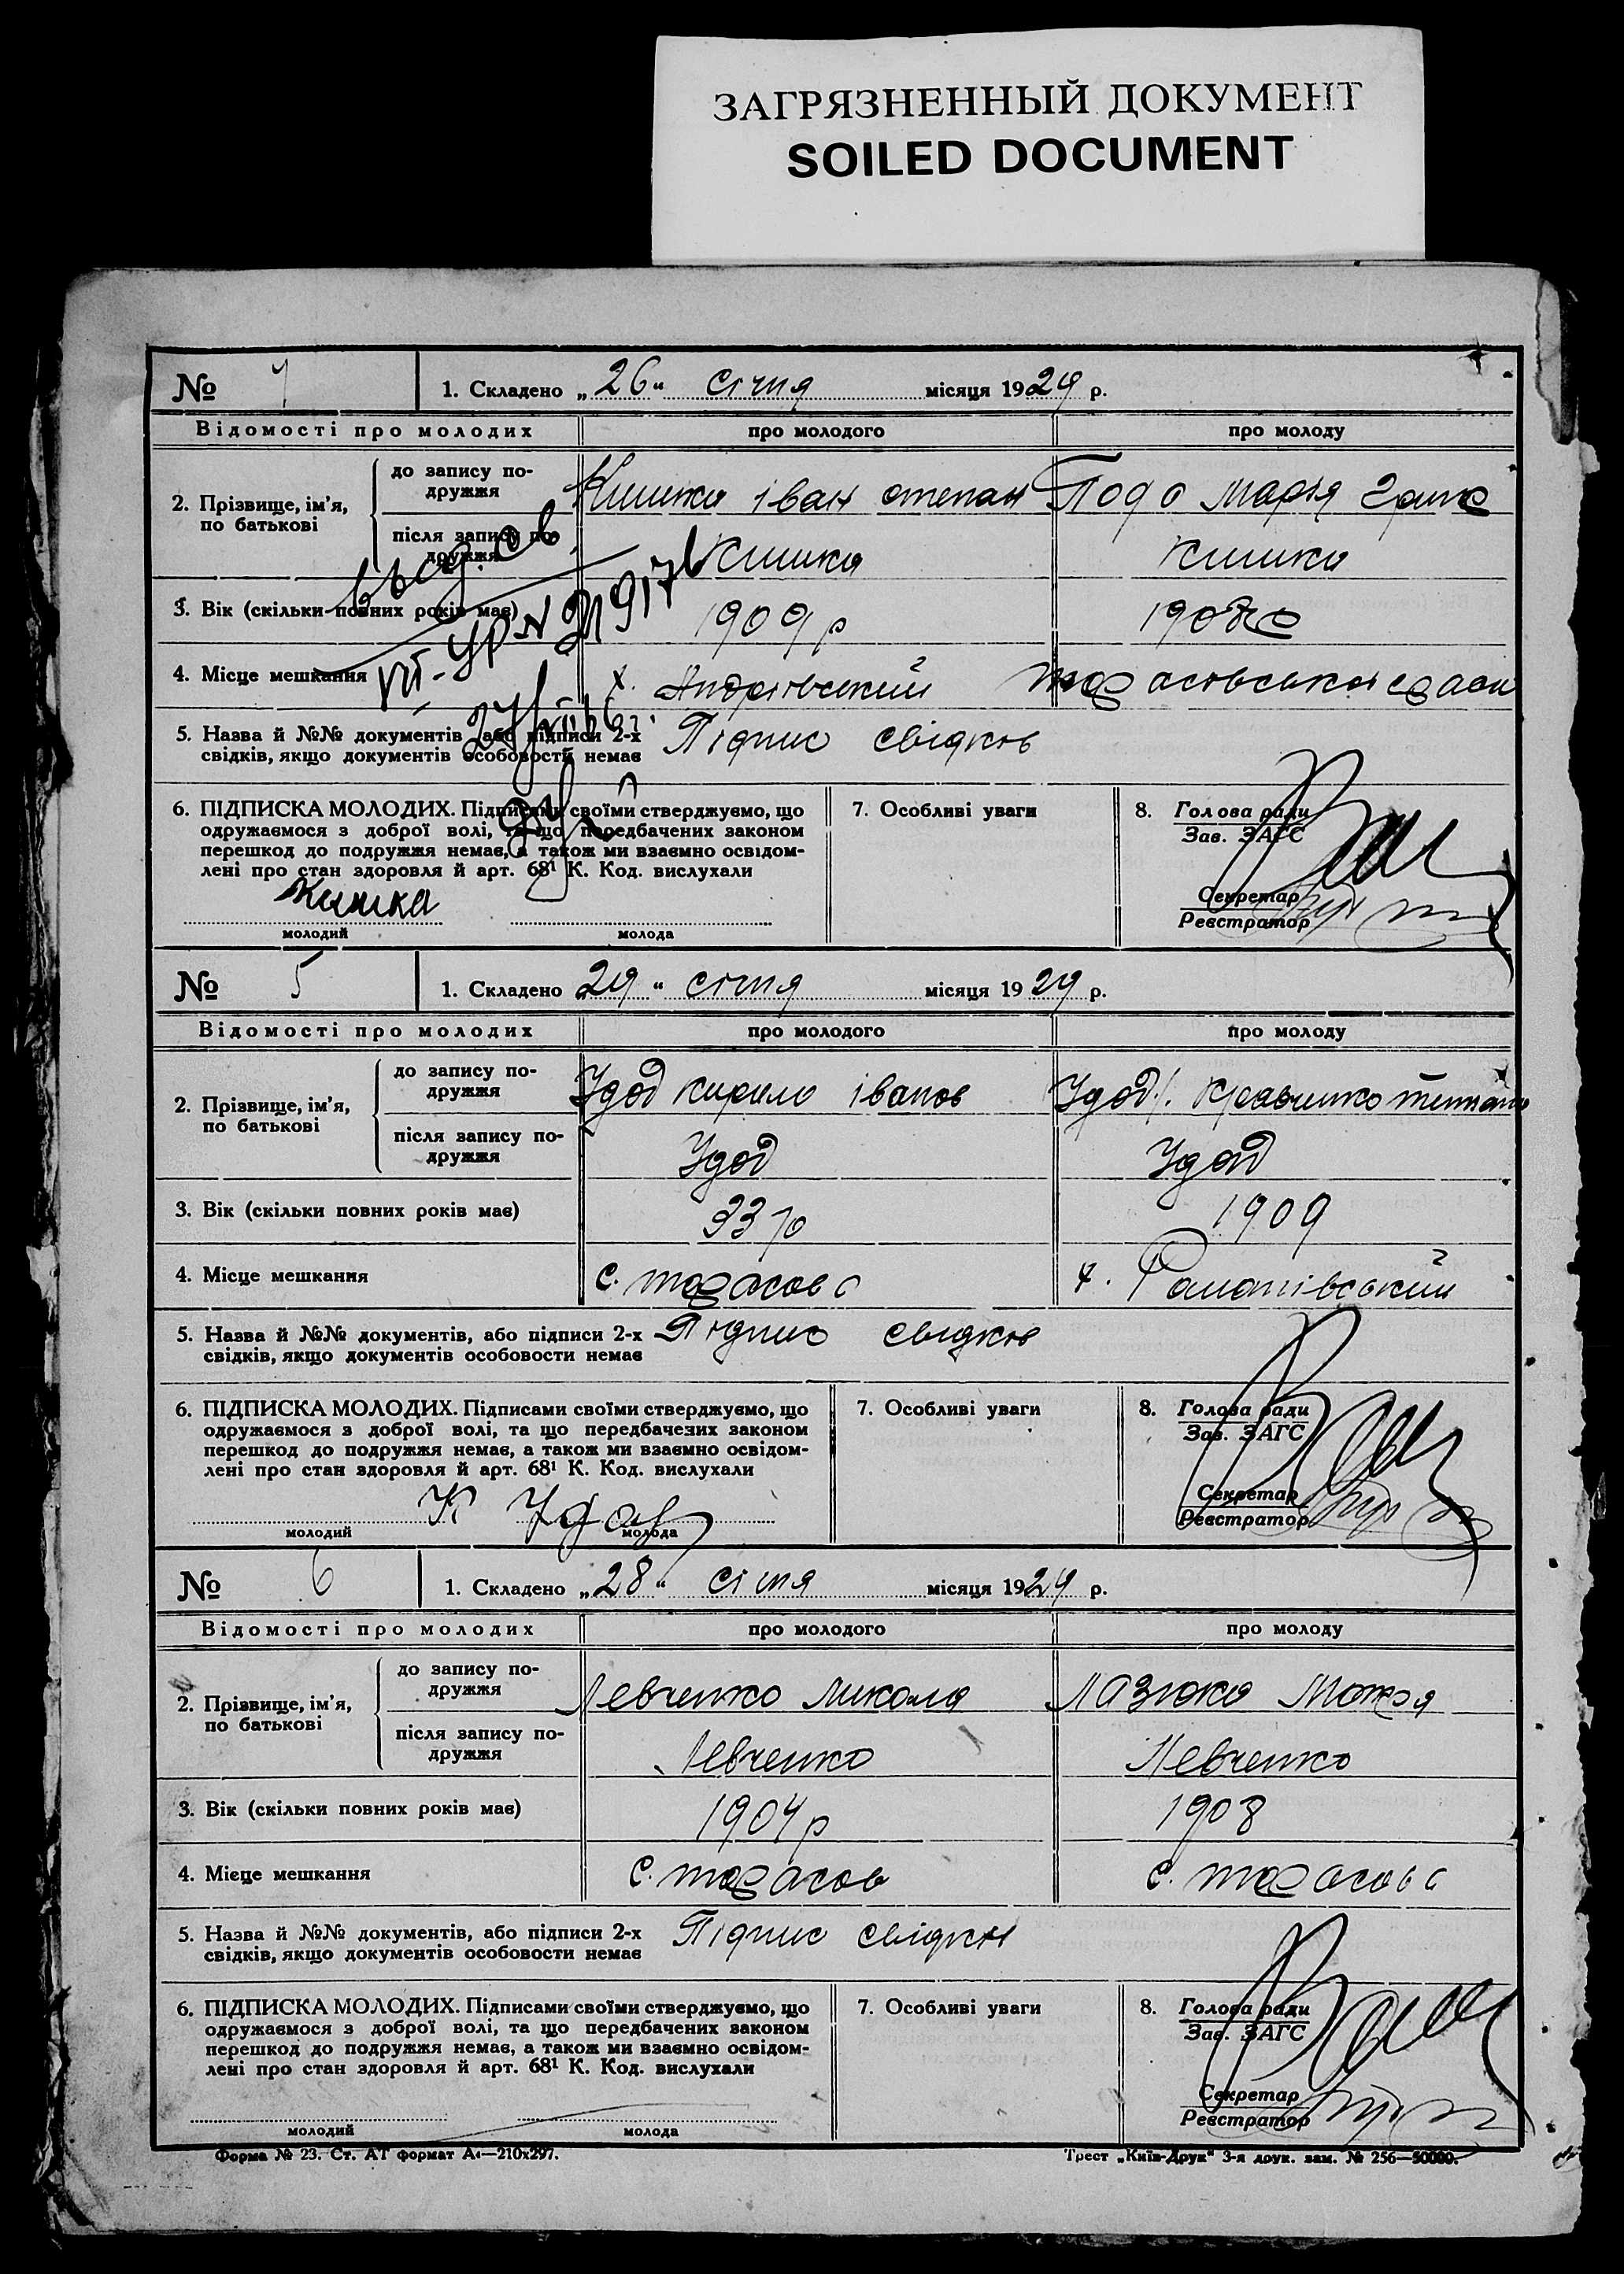 ЗАГРЯЗНЕННЫЙ ДОКУМЕНТ
SOILED DOCUMENT
№ 4 1. Складено „26“ січня місяця 1929 р.
Відомості про молодих про молодого про молоду
2. Прізвище, ім'я, по батькові
до запису подружжя Кишка іван степан Марія
після запису подружжя Кишка Кишка
3. Вік (скільки повних років має) 1909 р
4. Місце мешкання х.
5. Назва й №№ документів, або підписи 2-х Підпис свідків
свідків, якщо документів особовости немає
6. ПІДПИСКА МОЛОДИХ. Підписами своїми стверджуємо, що 7. Особливі уваги 8. Голова ради
одружаємося з доброї волі, та що передбачених законом Зав. ЗАГС
перешкод до подружжя немає, а також ми взаємно освідом-
лені про стан здоровля й арт. 68¹ К. Код. вислухали
Кишка Секретар
молодий молода Реєстратор
№ 5 1. Складено „29“ січня місяця 1929 р.
Відомості про молодих про молодого про молоду
2. Прізвище, ім'я, по батькові
до запису подружжя Удод кирило іванов Удод/. Кравченко
після запису подружжя Удод Удод
3. Вік (скільки повних років має) 33 р 1909
4. Місце мешкання с. тарасовс х.
5. Назва й №№ документів, або підписи 2-х Підпис свідків
свідків, якщо документів особовости немає
6. ПІДПИСКА МОЛОДИХ. Підписами своїми стверджуємо, що 7. Особливі уваги 8. Голова ради
одружаємося з доброї волі, та що передбачених законом Зав. ЗАГС
перешкод до подружжя немає, а також ми взаємно освідом-
лені про стан здоровля й арт. 68¹ К. Код. вислухали
К Удод Секретар
молодий молода Реєстратор
№ 6 1. Складено „28“ січня місяця 1929 р.
Відомості про молодих про молодого про молоду
2. Прізвище, ім'я, по батькові
до запису подружжя Левченко Микола Лазюка Мотря
після запису подружжя Левченко Левченко
3. Вік (скільки повних років має) 1904 р 1908
4. Місце мешкання с. тарасов с. тарасовс
5. Назва й №№ документів, або підписи 2-х Підпис свідків
свідків, якщо документів особовости немає
6. ПІДПИСКА МОЛОДИХ. Підписами своїми стверджуємо, що 7. Особливі уваги 8. Голова ради
одружаємося з доброї волі, та що передбачених законом Зав. ЗАГС
перешкод до подружжя немає, а також ми взаємно освідом-
лені про стан здоровля й арт. 68¹ К. Код. вислухали
Секретар
молодий молода Реєстратор
Форма № 23. Ст. АТ формат А4—210х297. Трест „Київ-Друк“ 3-я друк. зам. № 256—50000.